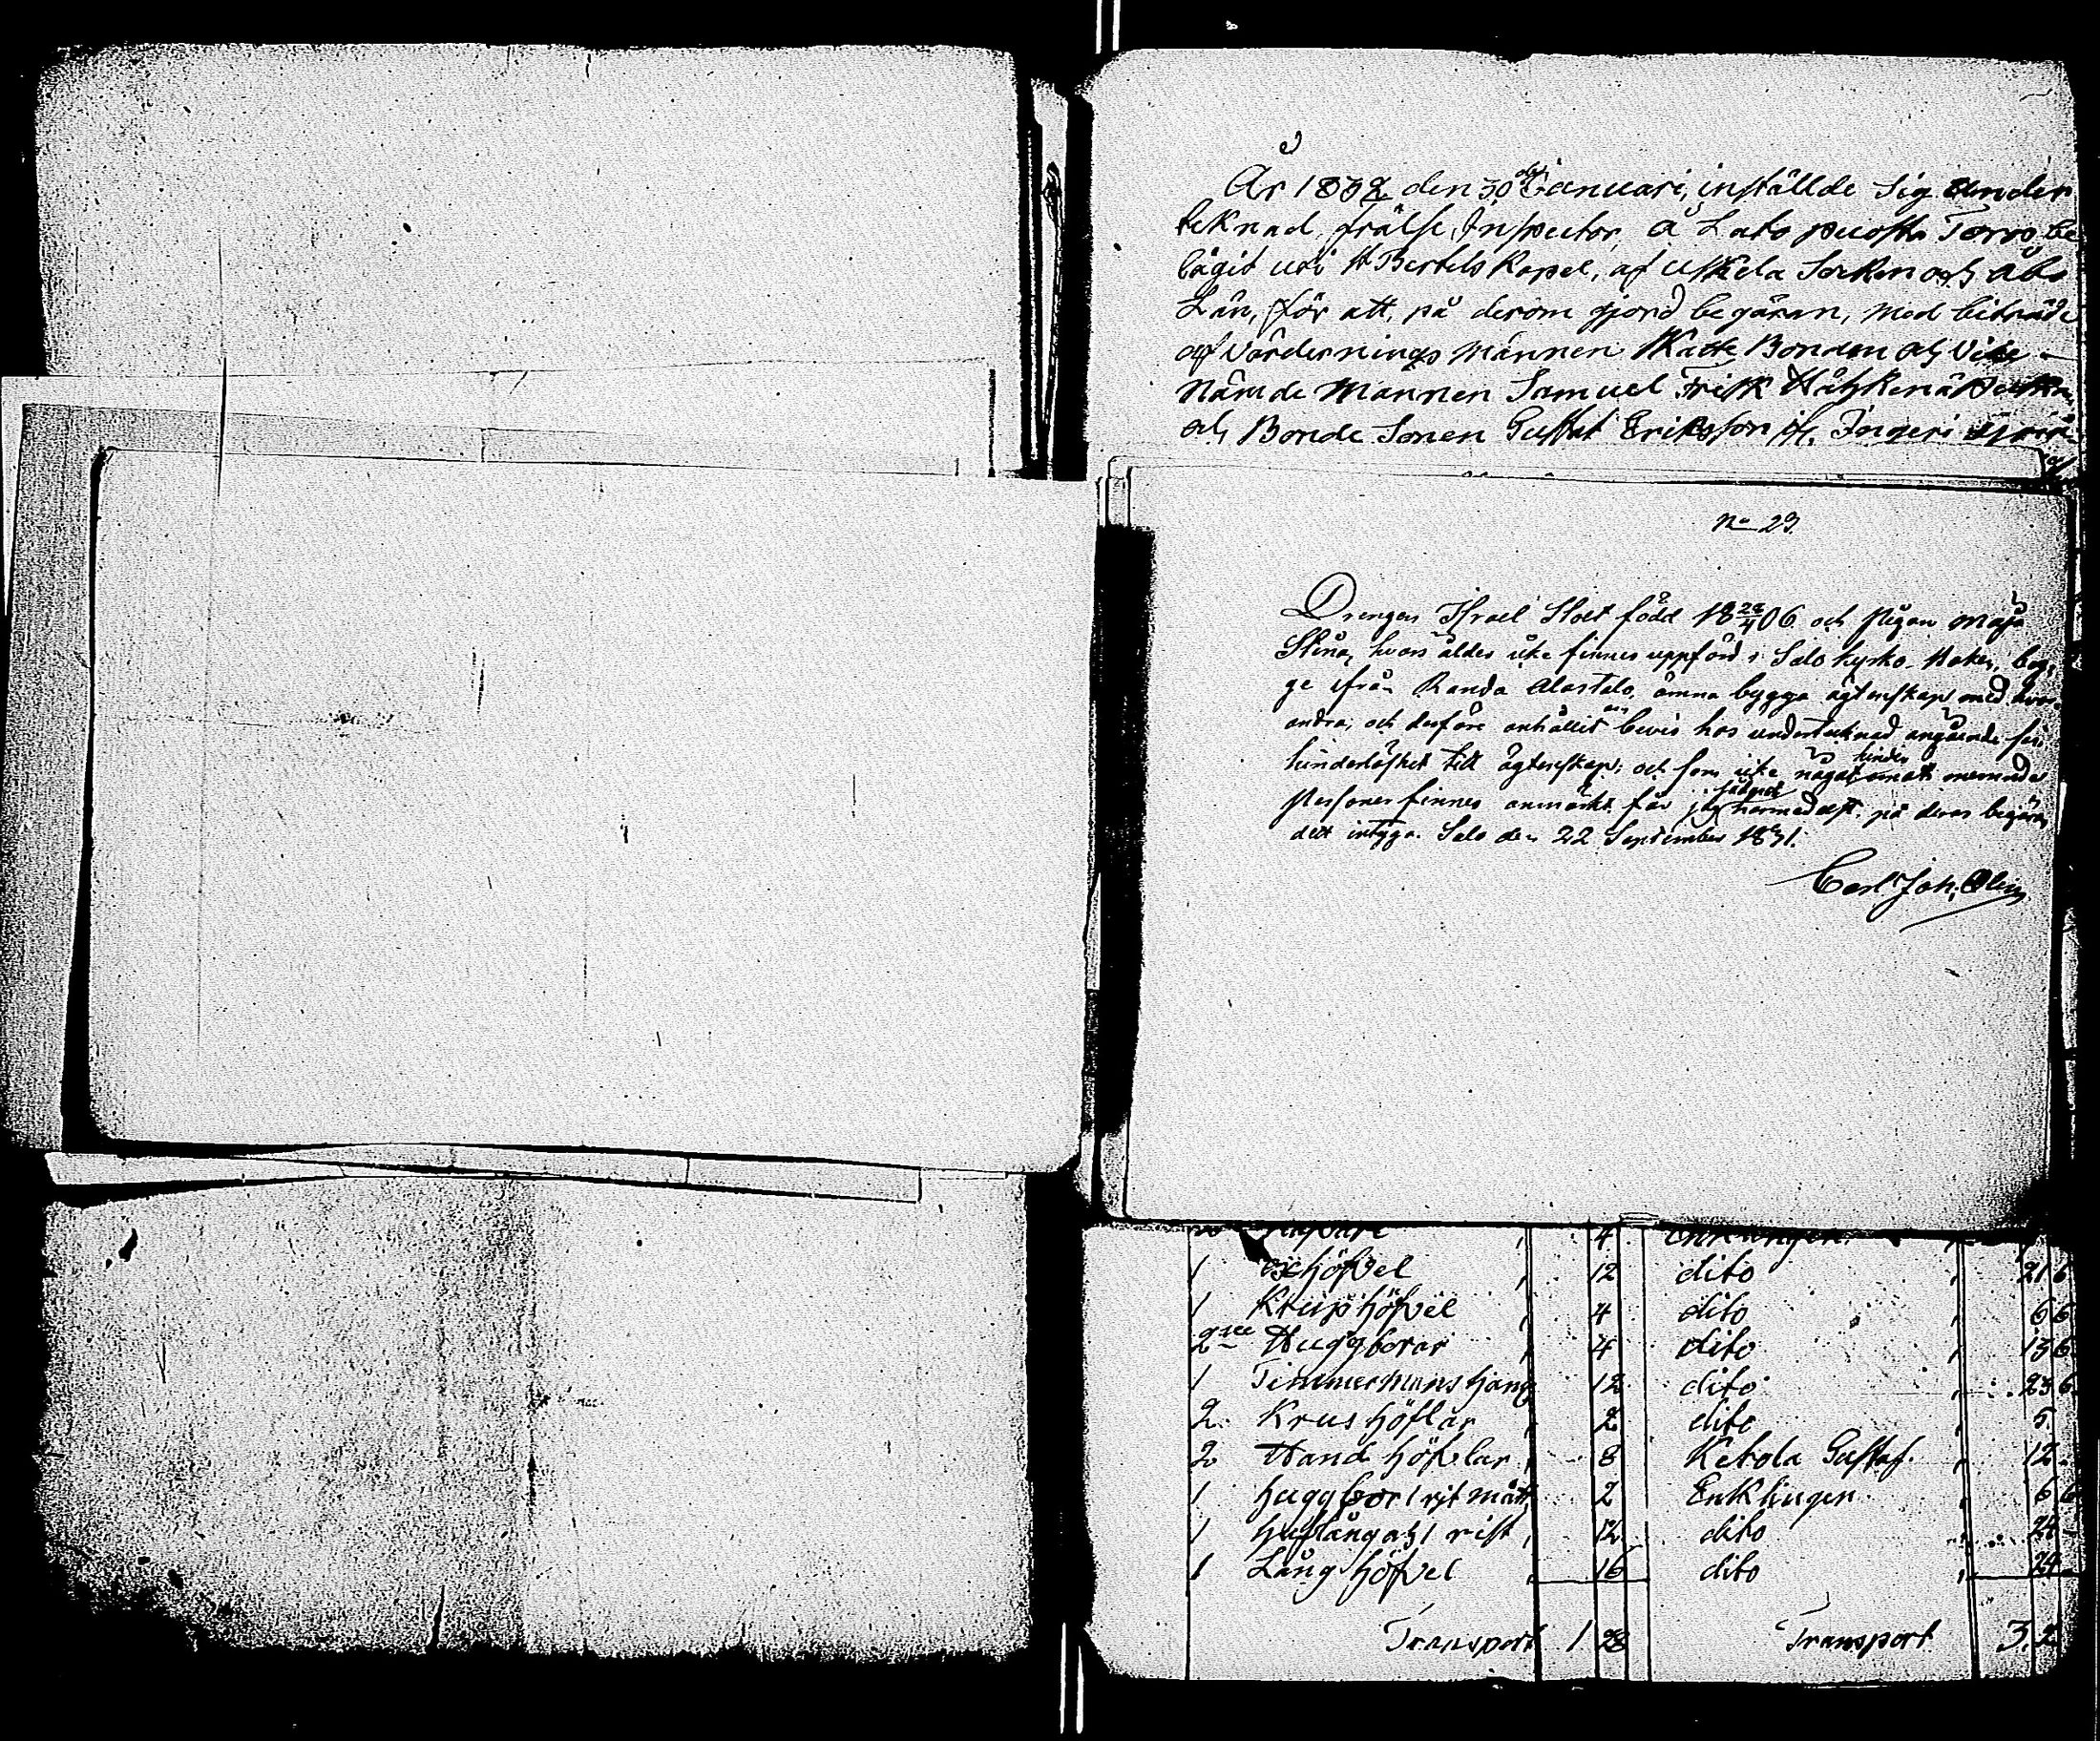 År 1832 den 30de Januari, instälde sig under
teknad, frälse, Inspector, å Lato puosta Torp, be
lägit uti St Bertels Kapel, af Uskela Socken och Åbo
Län, för att, på derom gjord begäran, med biträde
af Värdernings männen Katte Bonden och Vice
Nämde Mannen Samuel Frisk
och Bonde Sonen Gustat Eriksson if. Ingeri
No 23.
Drengen Israel Slot född 18 22/4 06 och Pigan Maja
Stina, hvars ålder icke finnes uppförd i Salo kyrko-Böker, beg-
ge ifrån Randa Alastalo, ämna bygga ägtenskap med hvar-
andra; och derföre anhållit om bevis hos undertecknad angående
hinderlöshet till ägtenskap; och som icke något hinder emot nemnda
Personer finnes anmärkt får jag härmedelst på deras begäran
dett intyga. Salo den 22 September 1831.
Carl Joh. Olin
4
1 höfvel 12 dito 21 6
1 Krup höfvel 4 dito 6 6
2ne Huggborar 4 dito 13 6
1 Timmermans hang 12 dito 23 6
2 Krus höflar 2 dito 5
2 Hand höflar 8 Ketola Gustaf. 12
1 huggbor 1 rit mått 2 Enklingen 6 6
1 och 1 rist 12 dito 24
1 Lång höfvel 16 dito 24
Transport 1 28 Transport 3. 2